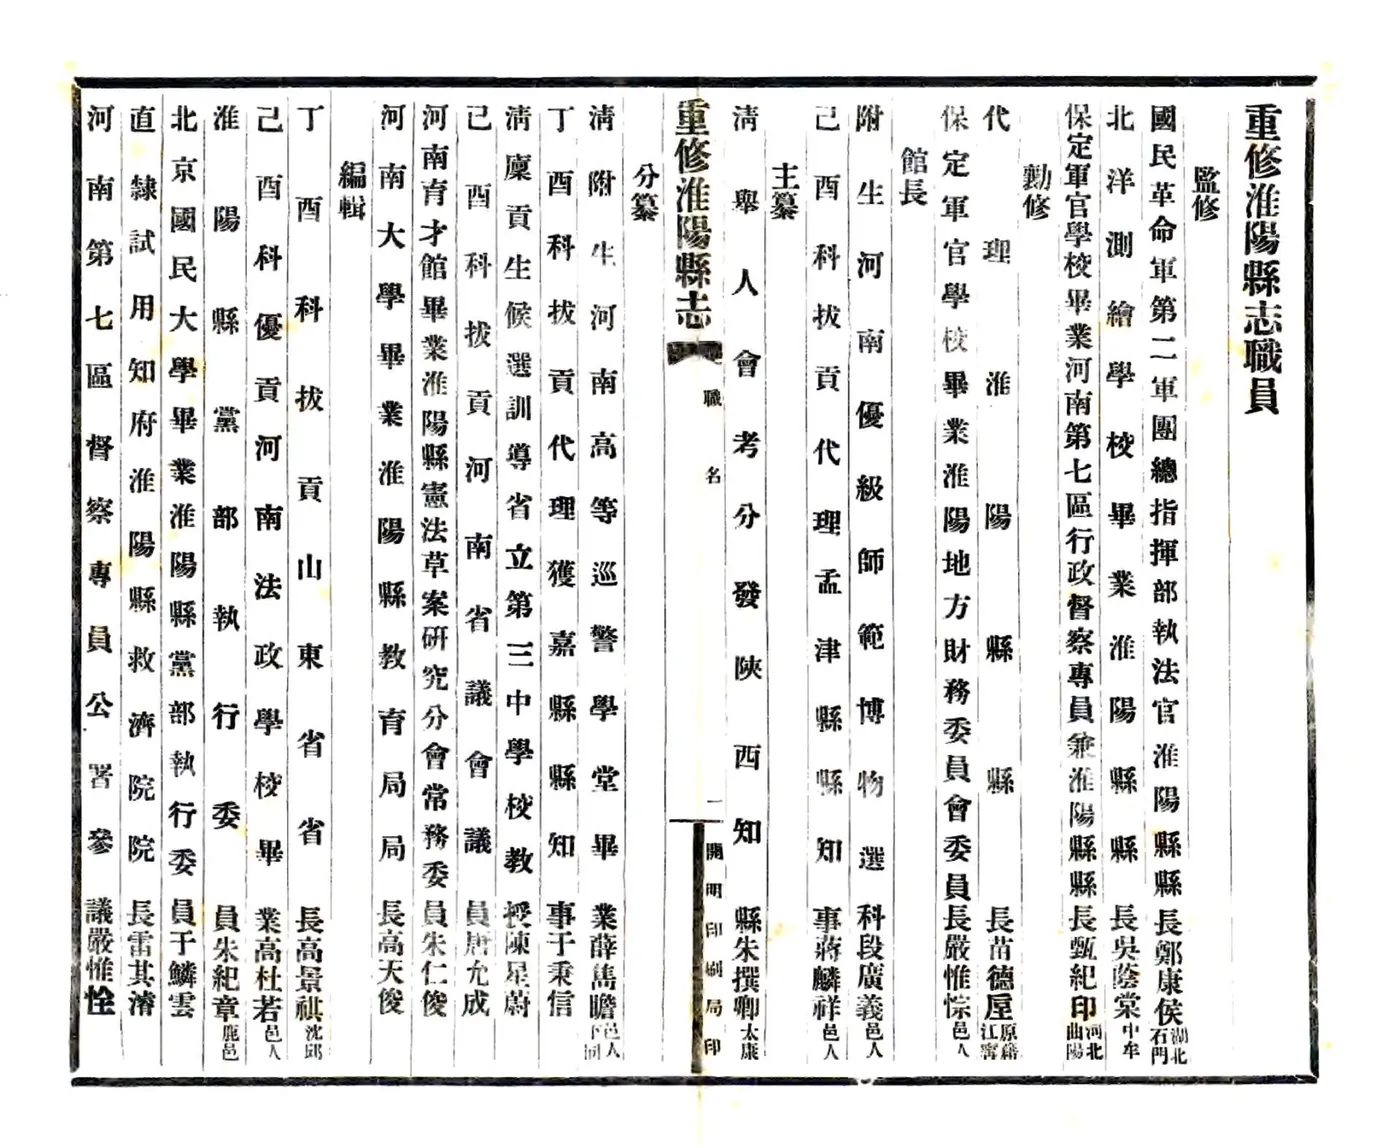 重修淮陽縣志職員
監修
國民革命軍第二軍團總指揮部執法官淮陽縣縣長鄭康侯湖北石門
北洋測繪學校畢業淮陽縣縣長吳蔭棠中牟
保定軍官學校畢業河南第七區行政督察專員兼淮陽縣縣長甄紀印河北曲陽
勷修
代理淮陽縣縣長苗德垕原籍江寧
保定軍官學校畢業淮陽地方財務委員會委員長嚴惟悰邑人
館長
附生河南優級師範博物選科段廣義邑人
己酉科拔貢代理孟津縣縣知事蔣麟祥邑人
主纂
清舉人會考分發陝西知縣朱撰卿太康
重修淮陽縣志
職名
二
開明印刷局印
分纂
清附生河南高等巡警學堂畢業薛雋瞻邑人下同
丁酉科拔貢代理獲嘉縣縣知事于秉信
清廩貢生候選訓導省立第三中學校教授陳星蔚
己酉科拔貢河南省議會議員唐允成
河南育才館畢業淮陽縣憲法草案研究分會常務委員朱仁俊
河南大學畢業淮陽縣教育局局長高天俊
編輯
丁酉科拔貢山東省省長高景祺沈邱
己酉科優貢河南法政學校畢業高杜若邑人
淮陽縣黨部執行委員朱紀章鹿邑
北京國民大學畢業淮陽縣黨部執行委員于鱗雲
直隸試用知府淮陽縣救濟院院長雷其濬
河南第七區督察專員公署參議嚴惟恮